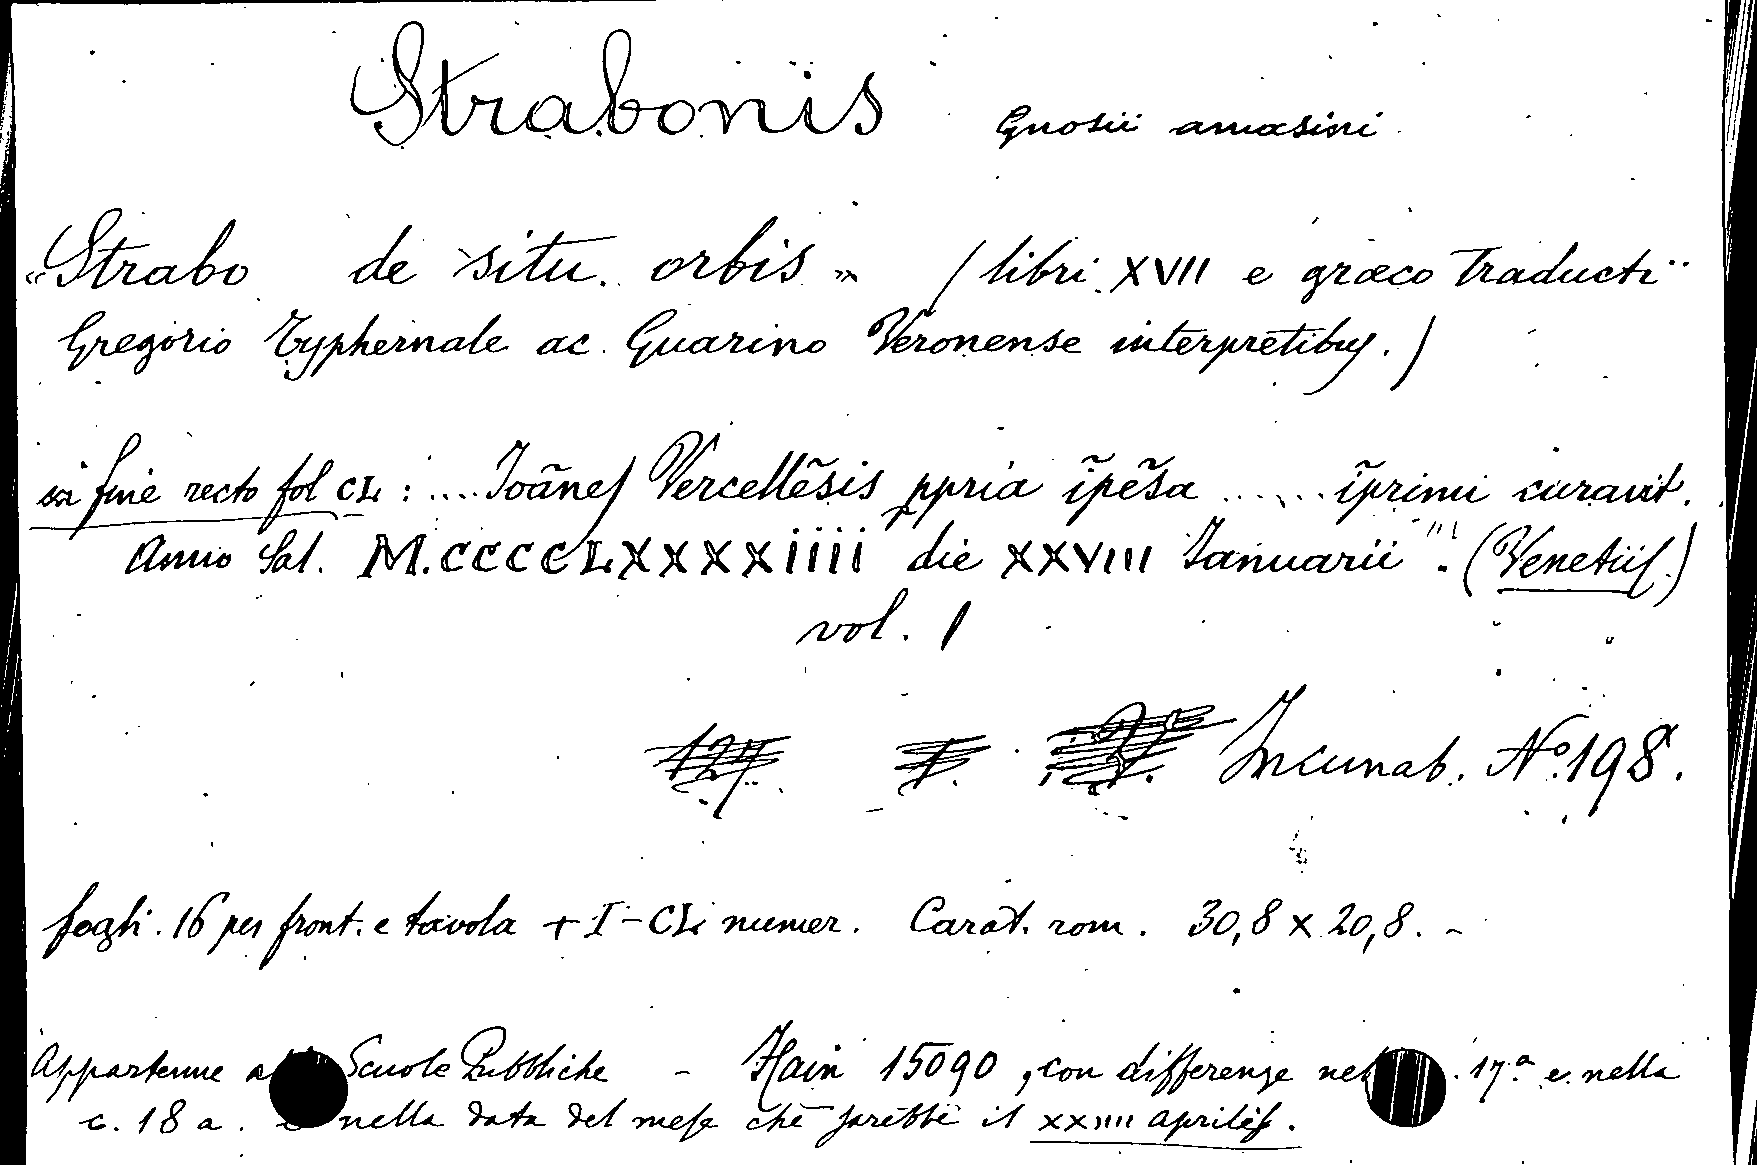 Strabonis Gnosii amasini
"Strabo de situ orbis" (libri XVII e græco traducti
Gregorio Typhernale ac Guarino Veronense interpretibus.)
in fine recto fol CL: .... Joãnes Vercellẽsis ppria ĩpẽsa ...... ĩprimi curavit.
Anno Sal. M.CCCCLXXXXiiii die XXVIII Januarii". (Venetiis)
vol. 1
Incunab. Nº. 198.
fogli. 16 per front. e tavola + I-CL numer. Carat. rom. 30,8 x 20,8. -
Appartenne Scuole Pubbliche - Hain 15090, con differenze 17.ª e nella
c. 18 a. nella data del mese che sarebbe il xxiiii aprilis.